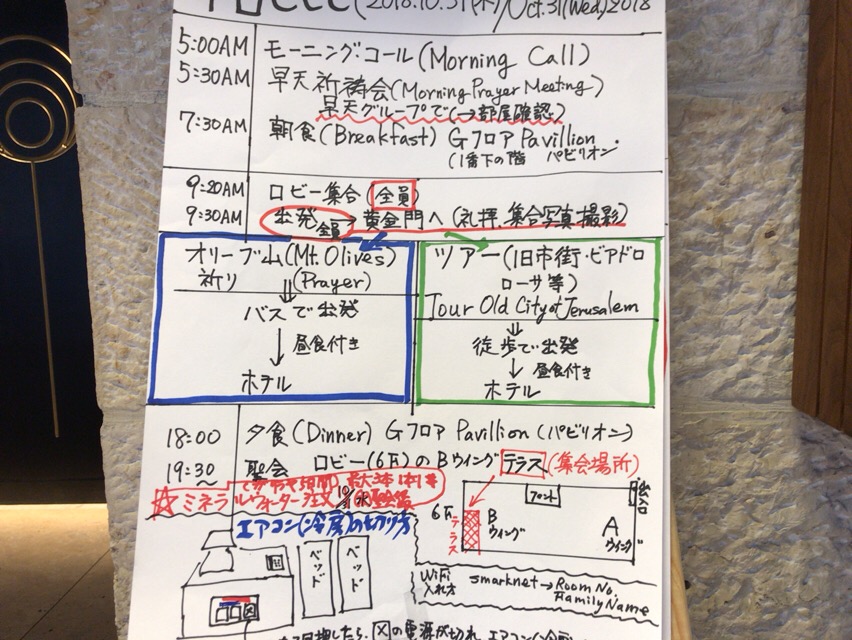 (2018.10.31(水)/Oct.31(Wed)2018
5:00AM モーニング・コール(Morning Call)
5:30AM 早天祈祷会(Morning Prayer Meeting)
早天グループで(→部屋確認)
7:30AM 朝食(Breakfast) Gフロア Pavillion
(1番下の階 パビリオン
9:20AM ロビー集合(全員)
9:30AM 出発 全員 → 黄金門へ(礼拝、集合写真撮影)
オリーブ山(Mt. Olives)
祈り (Prayer)
バスで出発
↓ 昼食付き
ホテル
ツアー(旧市街・ビアドロ
ローサ等)
Tour Old City of Jerusalem
徒歩で出発
↓ 昼食付き
ホテル
18:00 夕食(Dinner) Gフロア Pavillion(パビリオン)
19:30 聖会 ロビー(6F)のBウイング テラス(集会場所)
☆ミネラルウォーター注文
エアコン(冷房)の切り方
ベッド
ベッド
フロント
6F テラス
B ウイング
A ウイング
WiFi 入れ方
smarknet→Room No.
Family Name
押したら、の電源が切れ